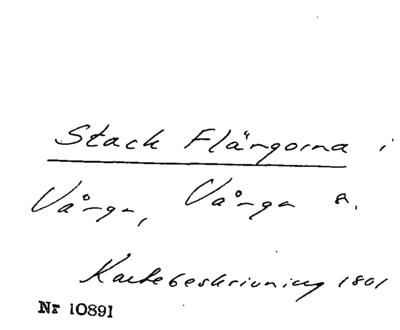 Stack Flängorna i
Vånga, Vånga s.
Kartebeskrivning 1801
Nr 10891